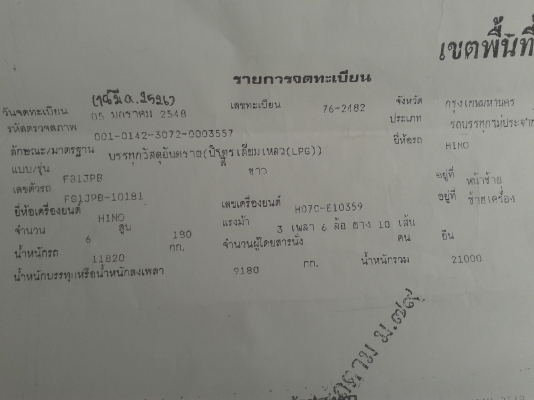 เขตพื้นที่
รายการจดทะเบียน
(1มี.ค.2526)
วันจดทะเบียน 05 มกราคม 2548 เลขทะเบียน 76-2482 จังหวัด กรุงเทพมหานคร
รหัสตรวจสภาพ 001-0142-3072-0003557 ประเภท รถบรรทุกไม่ประจำ
ลักษณะ/มาตรฐาน บรรทุกวัสดุอันตราย(ปิโตรเลียมเหลว(LPG)) ยี่ห้อรถ HINO
แบบ/รุ่น FG1JPB สี ขาว
เลขตัวรถ FG1JPB-10181 อยู่ที่ หน้าซ้าย
ยี่ห้อเครื่องยนต์ HINO เลขเครื่องยนต์ H07C-E10359 อยู่ที่ ซ้ายเครื่อง
จำนวน 6 สูบ 190 แรงม้า 3 เพลา 6 ล้อ ยาง 10 เส้น
น้ำหนักรถ 11820 กก. จำนวนผู้โดยสารนั่ง คน ยืน
น้ำหนักบรรทุกหรือน้ำหนักลงเพลา 9180 กก. น้ำหนักรวม 21000
ตาม ม.๗๙